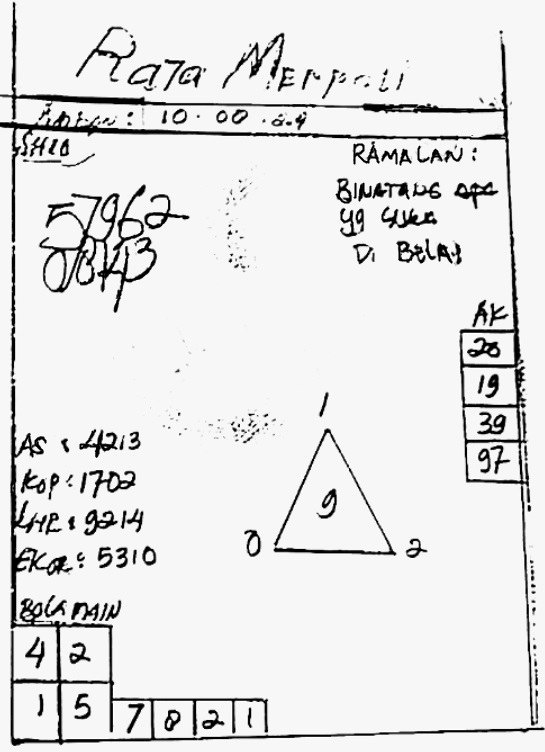 Raja Merpati
10.00.
SHIO
RAMALAN:
BINATANG apa
yg suka
Di BELAI
57962
08143
AK
20
19
39
97
AS : 4213
KOP : 1702
KHP : 9214
EKOR : 5310
1
9
0 2
BOLA MAIN
4 2
1 5
7 8 2 1